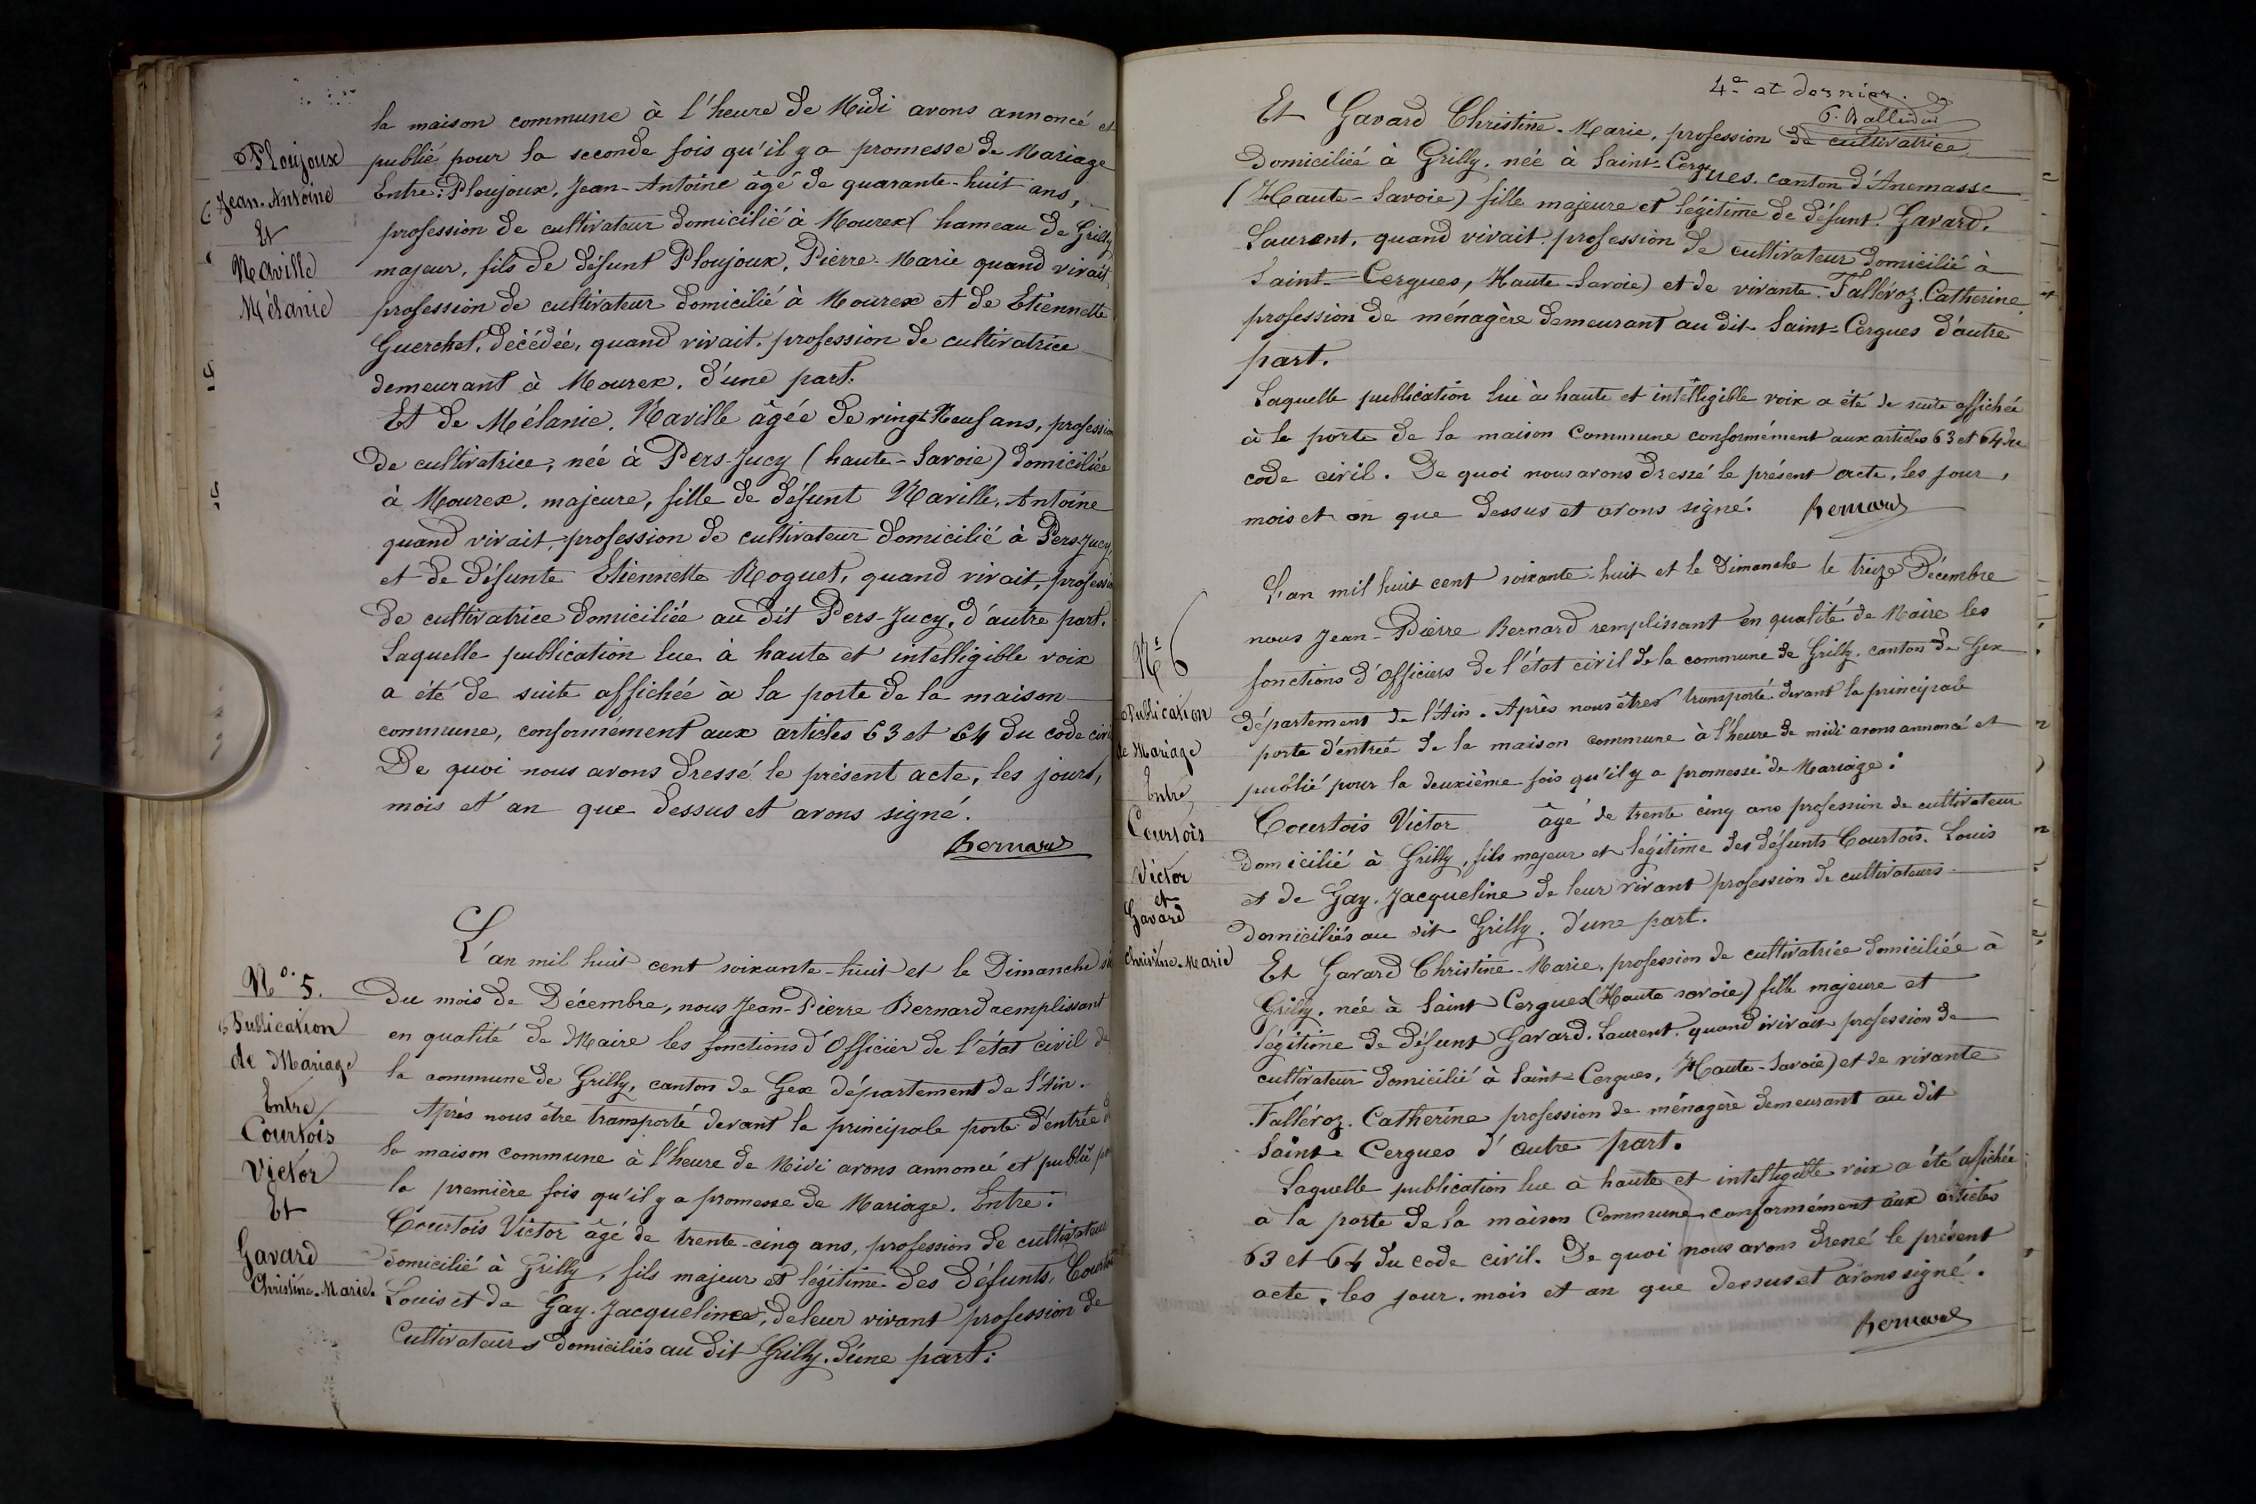 Ploujoux
Jean-Antoine
Et
Naville
Mélanie
la maison commune à l'heure de Midi avons annoncé et
publié pour la seconde fois qu'il y a promesse de Mariage
Entre: Ploujoux, Jean-Antoine âgé de quarante-huit ans,
profession de cultivateur domicilié à Mourex (hameau de Grilly
majeur, fils de défunt Ploujoux, Pierre-Marie quand vivait,
profession de cultivateur domicilié à Mourex et de Etiennette
Guerchet, décédée, quand vivait, profession de cultivatrice
demeurant à Mourex, d'une part.
Et de Mélanie, Naville âgée de vingt Neuf ans, profession
de cultivatrice, née à Pers-Jucy (haute-Savoie) domiciliée
à Mourex, majeure, fille de défunt Naville, Antoine
quand vivait, profession de cultivateur domicilié à Pers-Jucy,
et de défunte Etiennette Roguet, quand vivait, profession
de cultivatrice domiciliée au dit Pers-Jucy, d'autre part.
Laquelle publication lue à haute et intelligible voix
a été de suite affichée à la porte de la maison
commune, conformément aux articles 63 et 64 du code civil
De quoi nous avons dressé le présent acte, les jours,
mois et an que dessus et avons signé.
Bernard
N° 5.
Publication
de Mariage
Entre
Courtois
Victor
Et
Gavard
Christine-Marie.
L'an mil huit cent soixante-huit et le Dimanche six
Du mois de Décembre, nous Jean-Pierre Bernard remplissant
en qualité de Maire les fonctions d'Officier de l'état civil de
la commune de Grilly, canton de Gex département de l'Ain.
Après nous être transporté devant la principale porte d'entrée de
la maison commune à l'heure de Midi avons annoncé et publié pour
la première fois qu'il y a promesse de Mariage. Entre:
Courtois Victor âgé de trente-cinq ans, profession de cultivateur
domicilié à Grilly, fils majeur et légitime des défunts, Courtois
Louis et de Gay. Jacqueline, de leur vivant profession de
Cultivateurs domiciliés au dit Grilly. d'une part:
4e et dernier.
Et Gavard Christine-Marie, profession de cultivatrice
domiciliée à Grilly. née à Saint-Cergues. canton d'Anemasse
(Haute-Savoie) fille majeure et légitime de défunt Gavard.
Laurent, quand vivait profession de cultivateur domicilié à
Saint-Cergues, Haute-Savoie) et de vivante Falléroz. Catherine
profession de ménagère demeurant au dit Saint-Cergues d'autre
part.
Laquelle publication lue à haute et intelligible voix a été de suite affichée
à la porte de la maison Commune conformément aux articles 63 et 64 du
code civil. De quoi nous avons dressé le présent acte, les jour,
mois et an que dessus et avons signé. Bernard
N° 6
Publication
de Mariage
Entre
Courtois
Victor
et
Gavard
Christine-Marie
L'an mil huit cent soixante-huit et le Dimanche le treize Décembre
nous Jean-Pierre Bernard remplissant en qualité de Maire les
fonctions d'Officiers de l'état civil de la commune de Grilly. canton de Gex
département de l'Ain. Après nous êtres transporté devant la principale
porte d'entrée de la maison commune à l'heure de midi avons annoncé et
publié pour la deuxième fois qu'il y a promesse de Mariage:
Courtois Victor âgé de trente cinq ans profession de cultivateur
domicilié à Grilly, fils majeur et légitime des défunts Courtois. Louis
et de Gay. Jacqueline de leur vivant profession de cultivateurs
domiciliés au dit Grilly. d'une part.
Et Gavard Christine-Marie, profession de cultivatrice domiciliée à
Grilly. née à Saint Cergues (Haute savoie) fille majeure et
légitime de défunt Gavard. Laurent. quand vivait profession de
cultivateur domicilié à Saint-Cergues, Haute-Savoie) et de vivante
Falléroz. Catherine profession de ménagère demeurant au dit
Saint-Cergues d'autre part.
Laquelle publication lue à haute et intelligible voix a été affichée
à la porte de la maison Commune, conformément aux articles
63 et 64 du code civil. De quoi nous avons dressé le présent
acte, les jour. mois et an que dessus et avons signé.
Bernard